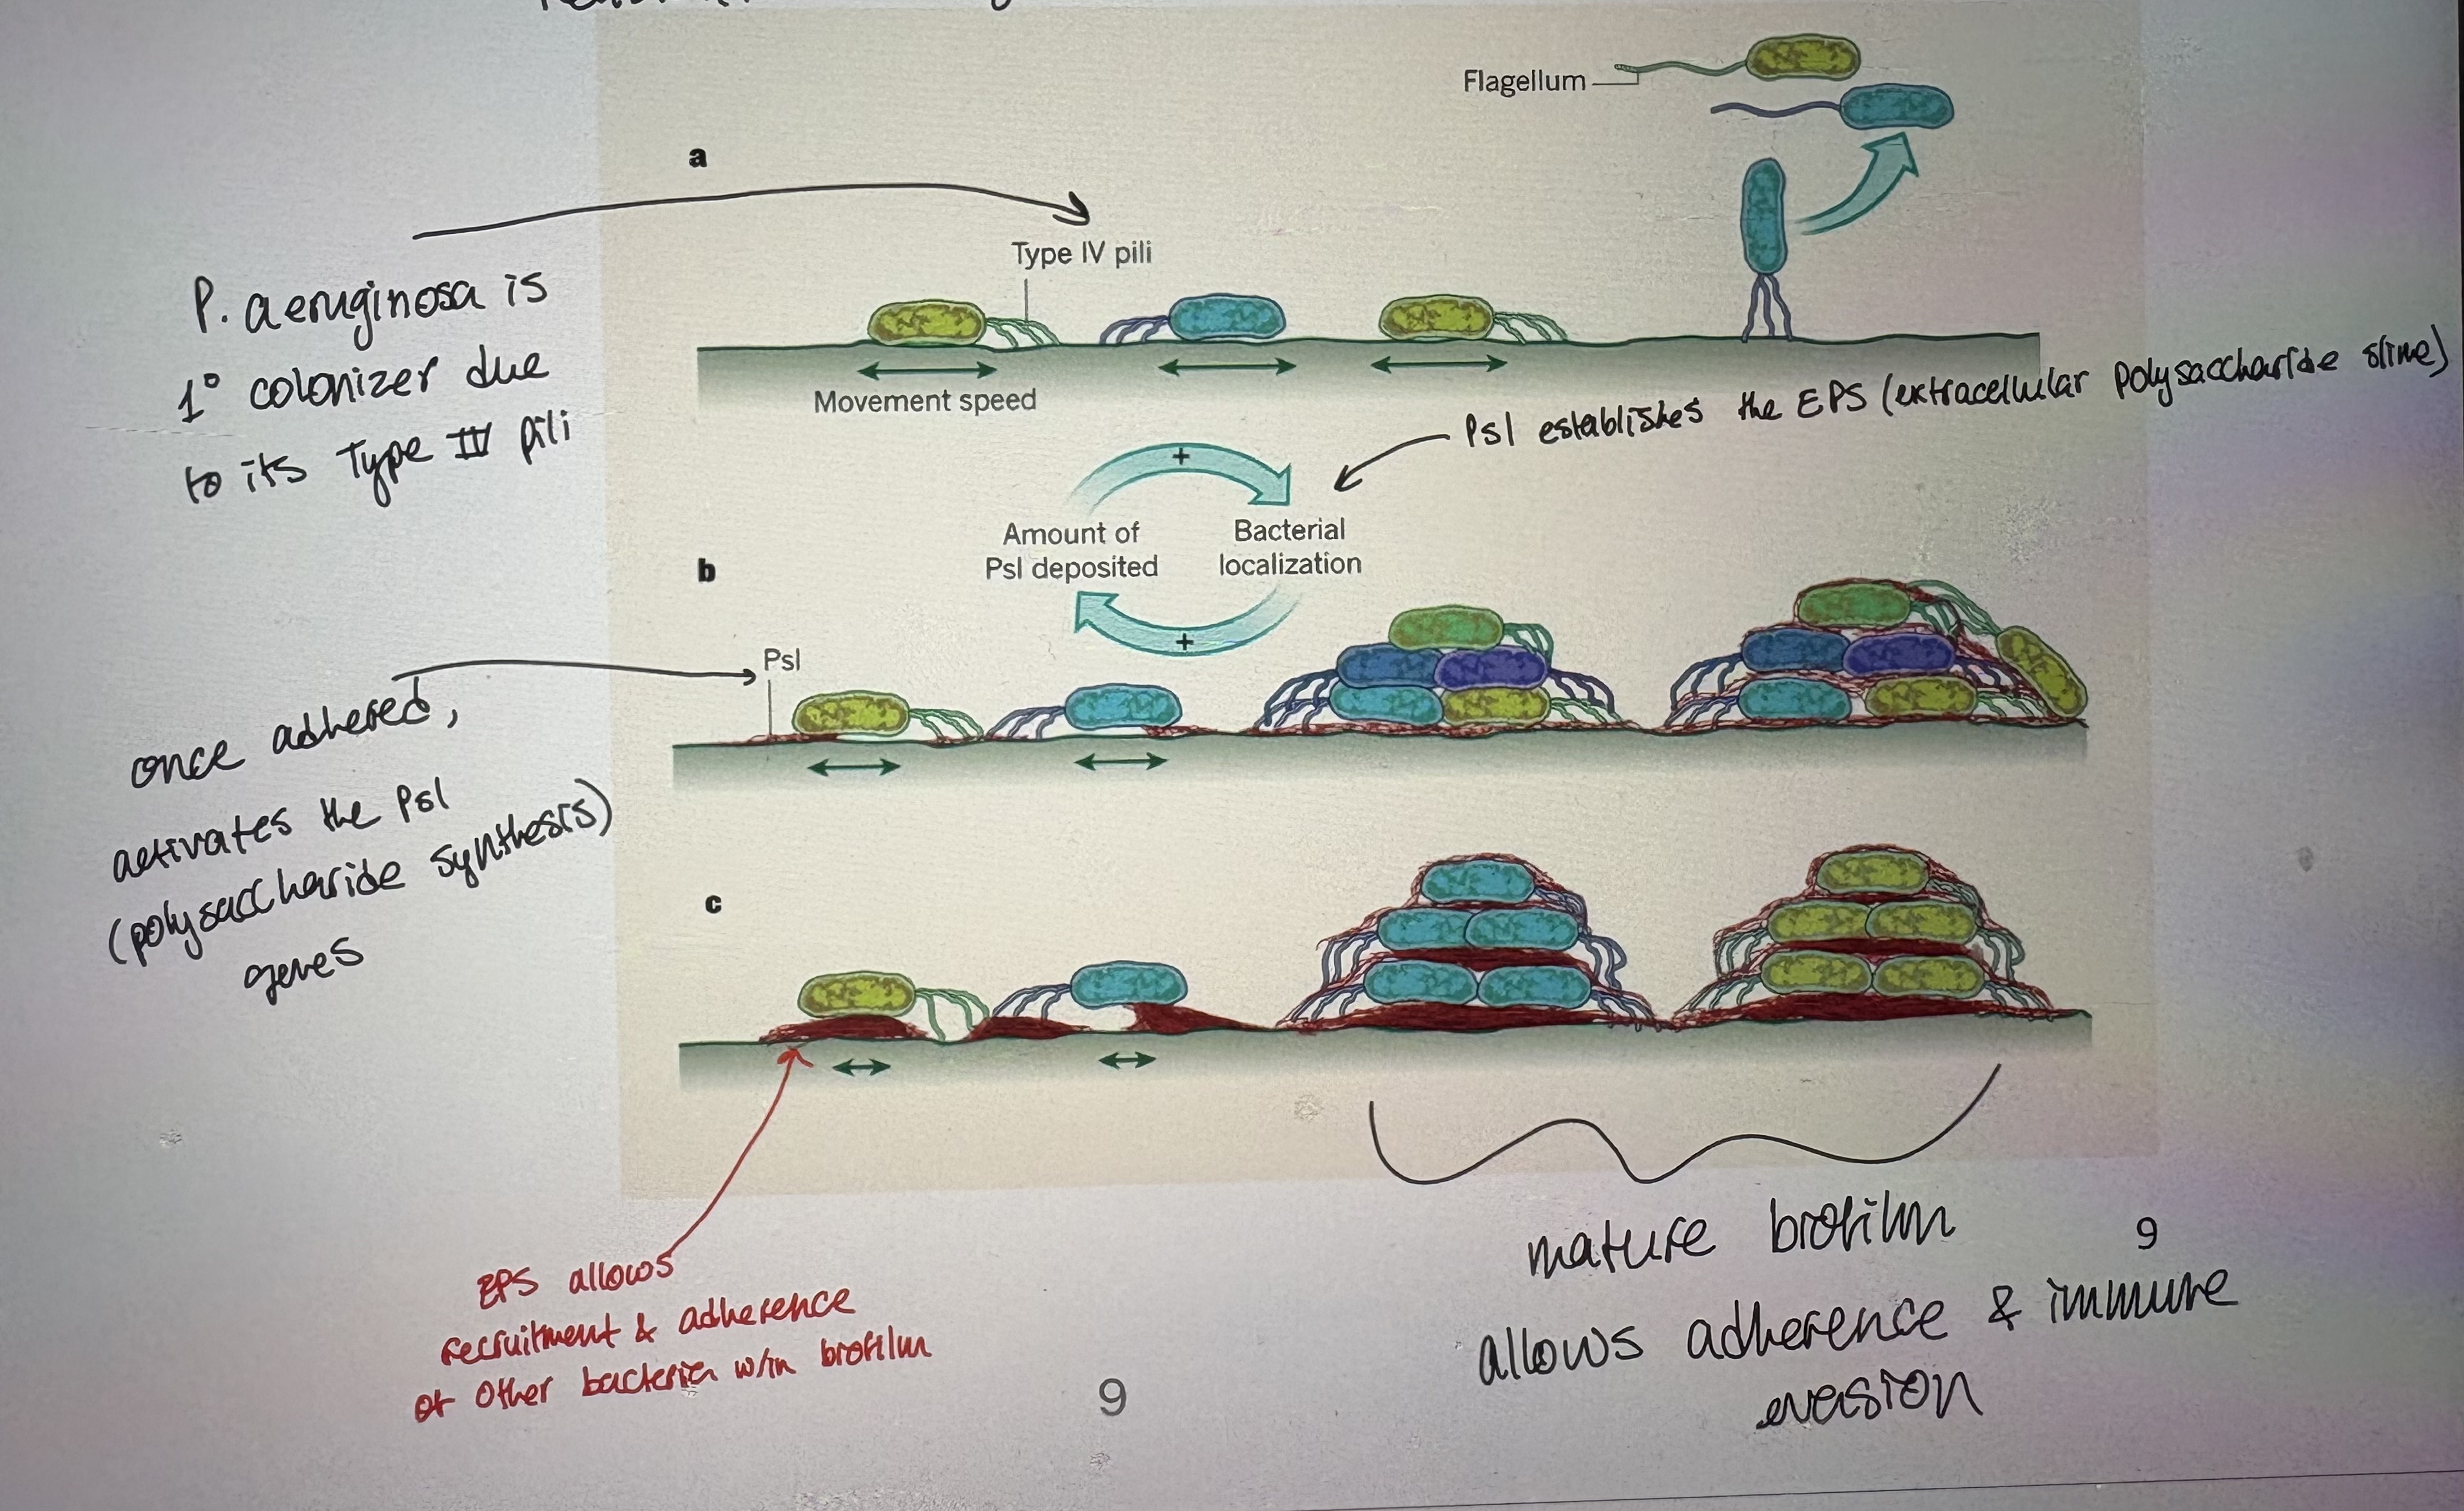 Flagellum
a
Type IV pili
P. aeruginosa is
1° colonizer due
to its Type IV pili
Movement speed
Psl establishes the EPS (extracellular polysaccharide slime)
+
Amount of
Psl deposited
Bacterial
localization
+
b
Psl
once adhered,
activates the Psl
(polysaccharide synthesis)
genes
c
EPS allows
recruitment & adherence
of other bacteria w/in biofilm
mature biofilm
allows adherence & immune
evasion
9
9